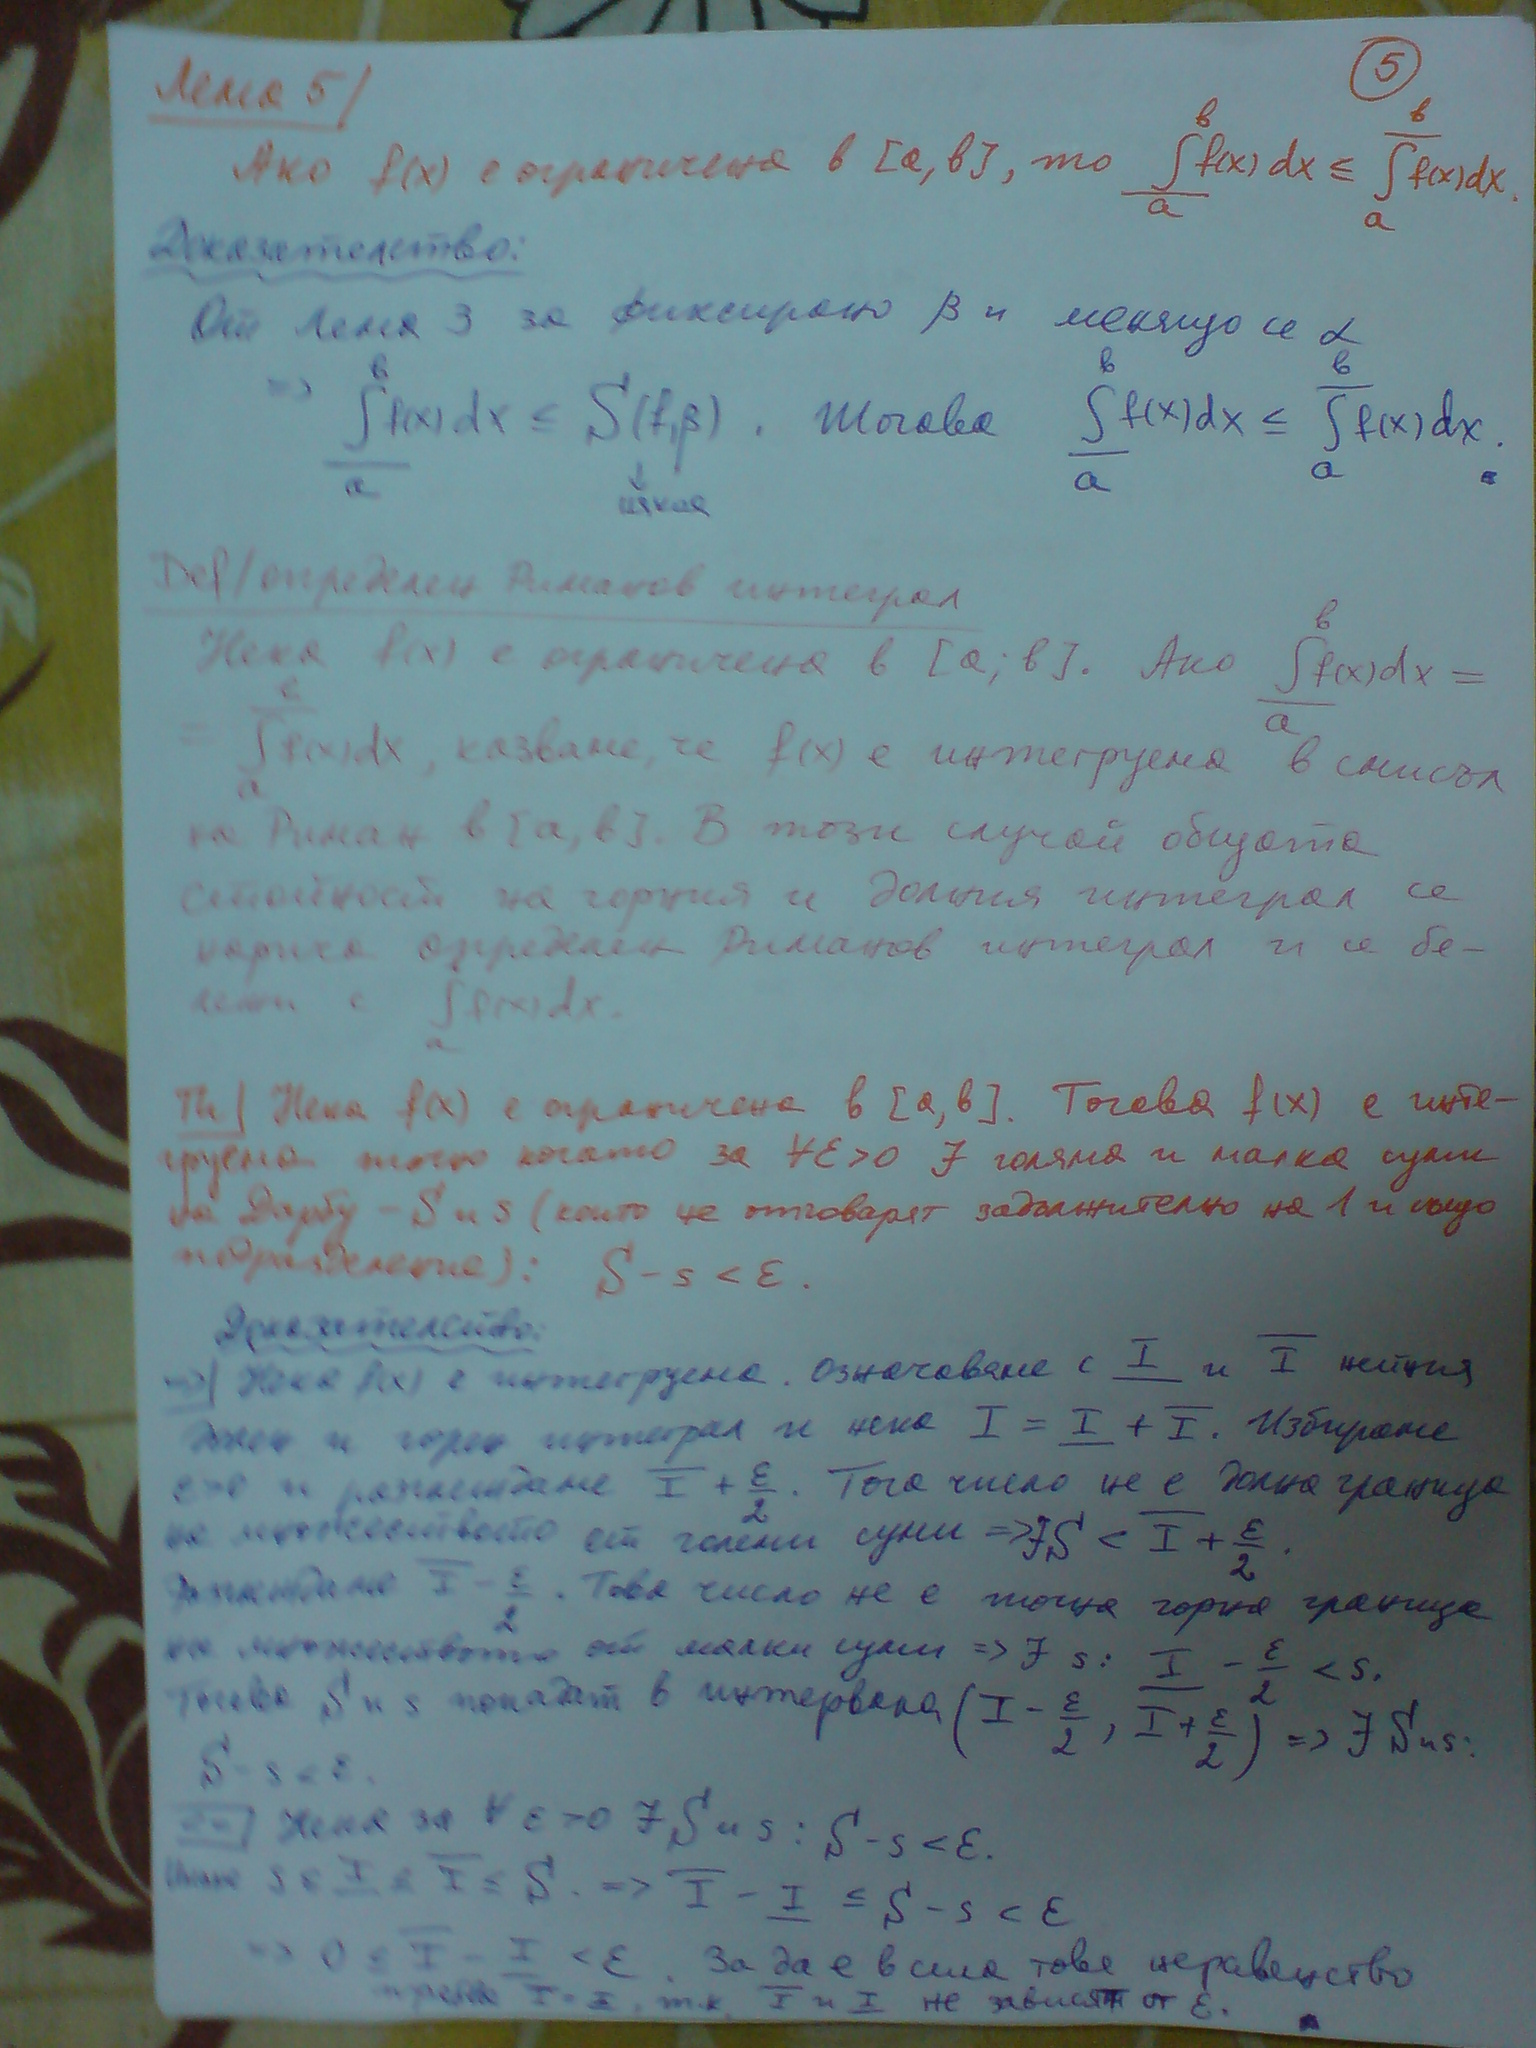 5
Лема 5/
Ако f(x) е ограничена в [a,b], то ∫f(x)dx ≤ ∫f(x)dx.
Доказателство:
От Лема 3 за фиксирано β и менящо се α
=> ∫f(x)dx ≤ S(f,β). Тогава ∫f(x)dx ≤ ∫f(x)dx.
някоя
Def/определен Риманов интеграл
Нека f(x) е ограничена в [a;b]. Ако ∫f(x)dx =
= ∫f(x)dx, казваме, че f(x) е интегруема в смисъл
на Риман в [a,b]. В този случай общата
стойност на горния и долния интеграл се
нарича определен Риманов интеграл и се бе-
лежи с ∫f(x)dx.
Th/ Нека f(x) е ограничена в [a,b]. Тогава f(x) е инте-
груема точно когато за ∀ε>0 ∃ голяма и малка суми
на Дарбу - S и s (които не отговарят задължително на 1 и също
подразделение): S - s < ε.
Доказателство:
=>/ Нека f(x) е интегруема. Означаваме с I̲ и I̅ нейния
долен и горен интеграл и нека I = I̲ + I̅. Избираме
ε>0 и разглеждаме I̅ + ε/2. Това число не е долна граница
на множеството от големи суми => ∃S < I̅ + ε/2.
Разглеждаме I̅ - ε/2. Това число не е точна горна граница
на множеството от малки суми => ∃ s: I̲ - ε/2 < s.
Тогава S и s попадат в интервала (I - ε/2, I + ε/2) => ∃ S и s:
S - s < ε.
<=/ Нека за ∀ ε>0 ∃ S и s: S - s < ε.
Имаме s ≤ I̲ ≤ I̅ ≤ S. => I̅ - I̲ ≤ S - s < ε
=> 0 ≤ I̅ - I̲ < ε. За да е в сила това неравенство
трябва I̅ = I̲, т.к. I̅ и I̲ не зависят от ε.